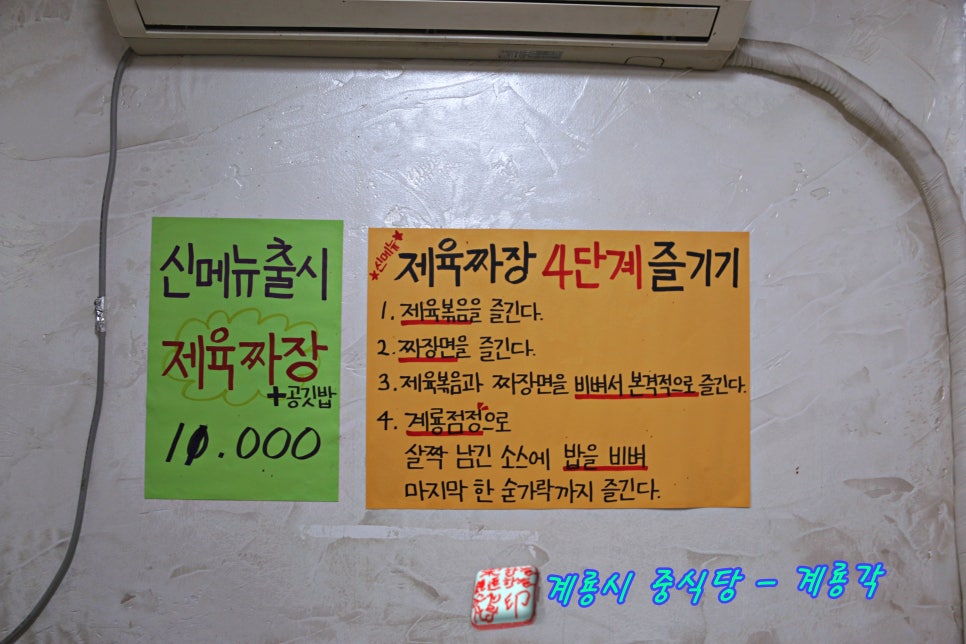 신메뉴출시
제육짜장
+공깃밥
10.000
★신메뉴★
제육짜장 4단계 즐기기
1. 제육볶음을 즐긴다.
2. 짜장면을 즐긴다.
3. 제육볶음과 짜장면을 비벼서 본격적으로 즐긴다.
4. 계룡점정으로
살짝 남긴 소스에 밥을 비벼
마지막 한 숟가락까지 즐긴다.
계룡시 중식당 - 계룡각